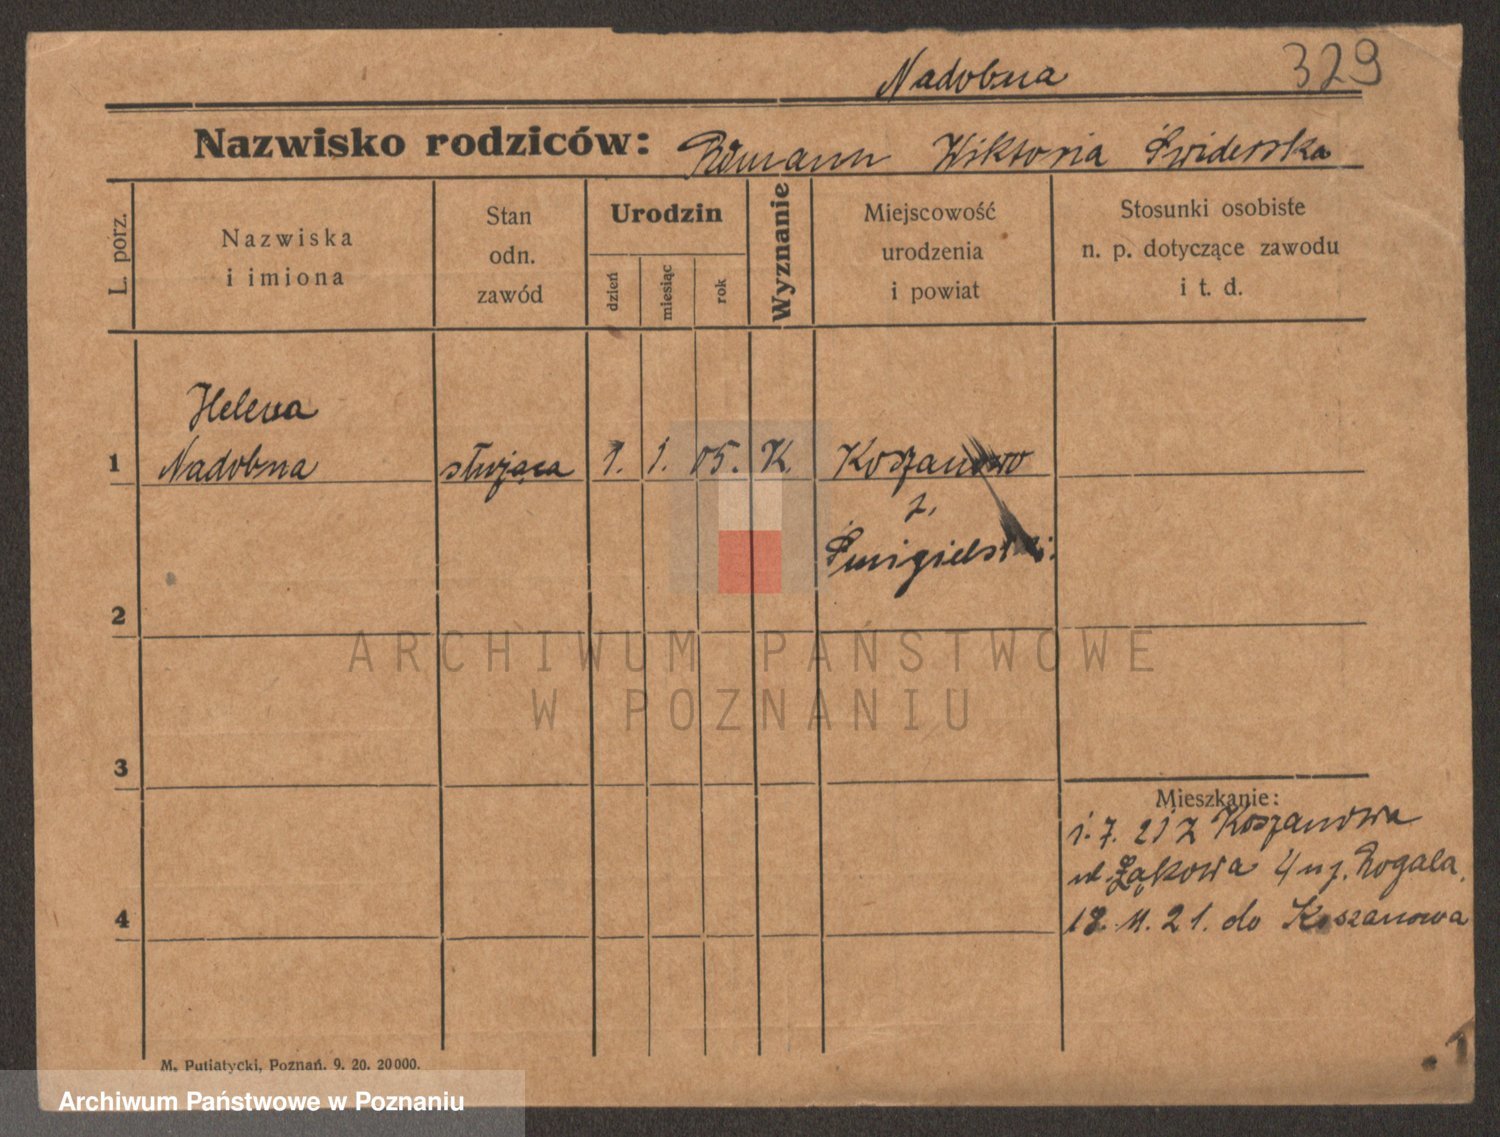 Nadobna 329
Nazwisko rodziców: Wiktoria Świderska
L. porz.
Nazwiska
i imiona
Stan
odn.
zawód
Urodzin
dzień
miesiąc
rok
Wyznanie
Miejscowość
urodzenia
i powiat
Stosunki osobiste
n. p. dotyczące zawodu
i t. d.
Helena
1 Nadobna służąca 1. 1. 05. K. Koszanowo
z.
Śmigielski.
2
3
4
Mieszkanie:
1. 7. 21 z Koszanowa
ul. Łąkowa 4 Rogala.
18. 11. 21. do Koszanowa
M. Putiatycki, Poznań. 9. 20. 20000.
ARCHIWUM PAŃSTWOWE
W POZNANIU
Archiwum Państwowe w Poznaniu